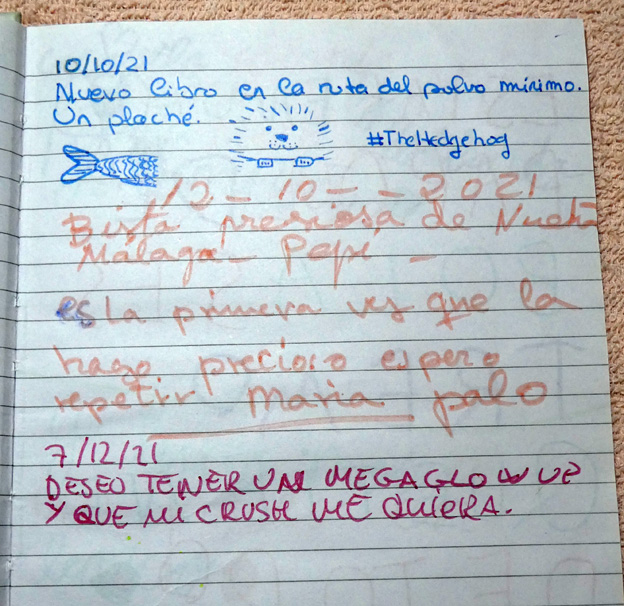 10/10/21
Nuevo libro en la ruta del polvo mínimo.
Un plaché.
#TheHedgehog
12-10--2021
Bista presiosa de
Málaga- Pepi -
es la primera ves que la
hago precioso espero
repetir maria palo
7/12/21
DESEO TENER UN MEGAGLOW UP
Y QUE MI CRUSH ME QUIERA.